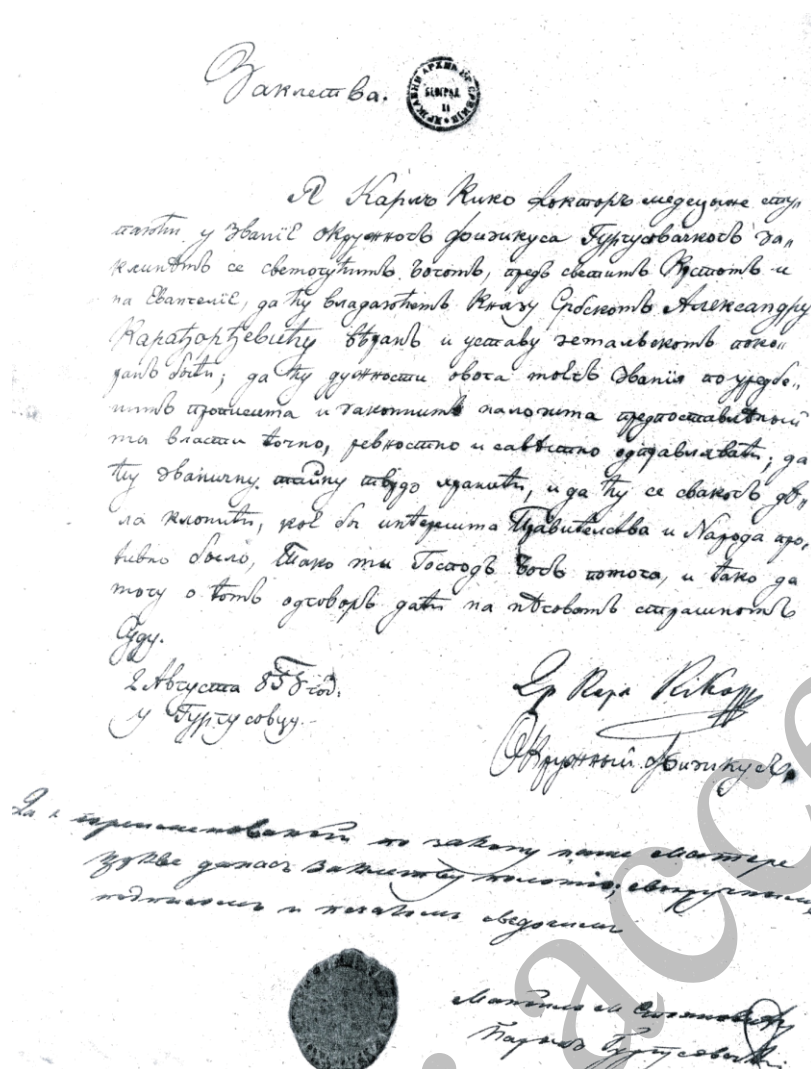 Заклетва.
ДРЖАВНИ АРХИВ НР СРБИЈЕ
БЕОГРАД
II
Я Карлъ Кико докторъ медецыне сту„
паюћи у званіе окружногъ физикуса Гургусовачкогъ за„
клинѣмъ се светогућимъ Богомъ, предъ светимъ Крстомъ и
на Евангеліе, да ћу владаюћемъ Князу Србскомъ Александру
Карађорђевићу вѣранъ и уставу земальскомъ поко„
ранъ быти; да ћу дужности овога могъ званія по уредбе„
нимъ прописима и законнимъ налозима предпоставлѣный
ма власти точно, ревностно и савѣстно одправляти; да
ћу званичну тайну тврдо хранити, и да ћу се свакогъ дѣ„
ла клонити, коє бы интересима Правителства и Народа про„
тивно было, Тако ми Господъ Богъ помога, и тако да
могу о томъ одговоръ дати на нѣговомъ страшномъ
Суду.
2 Августа 858 год.
у Гургусовцу.
Др Карл Кіко
Окружный Физикус
Да є по закону наше Матере
Цркве данасъ заклетву положіо, своеручнымъ
подписомъ и печатомъ сведочимъ
Парохъ Гургусовачкій
acc